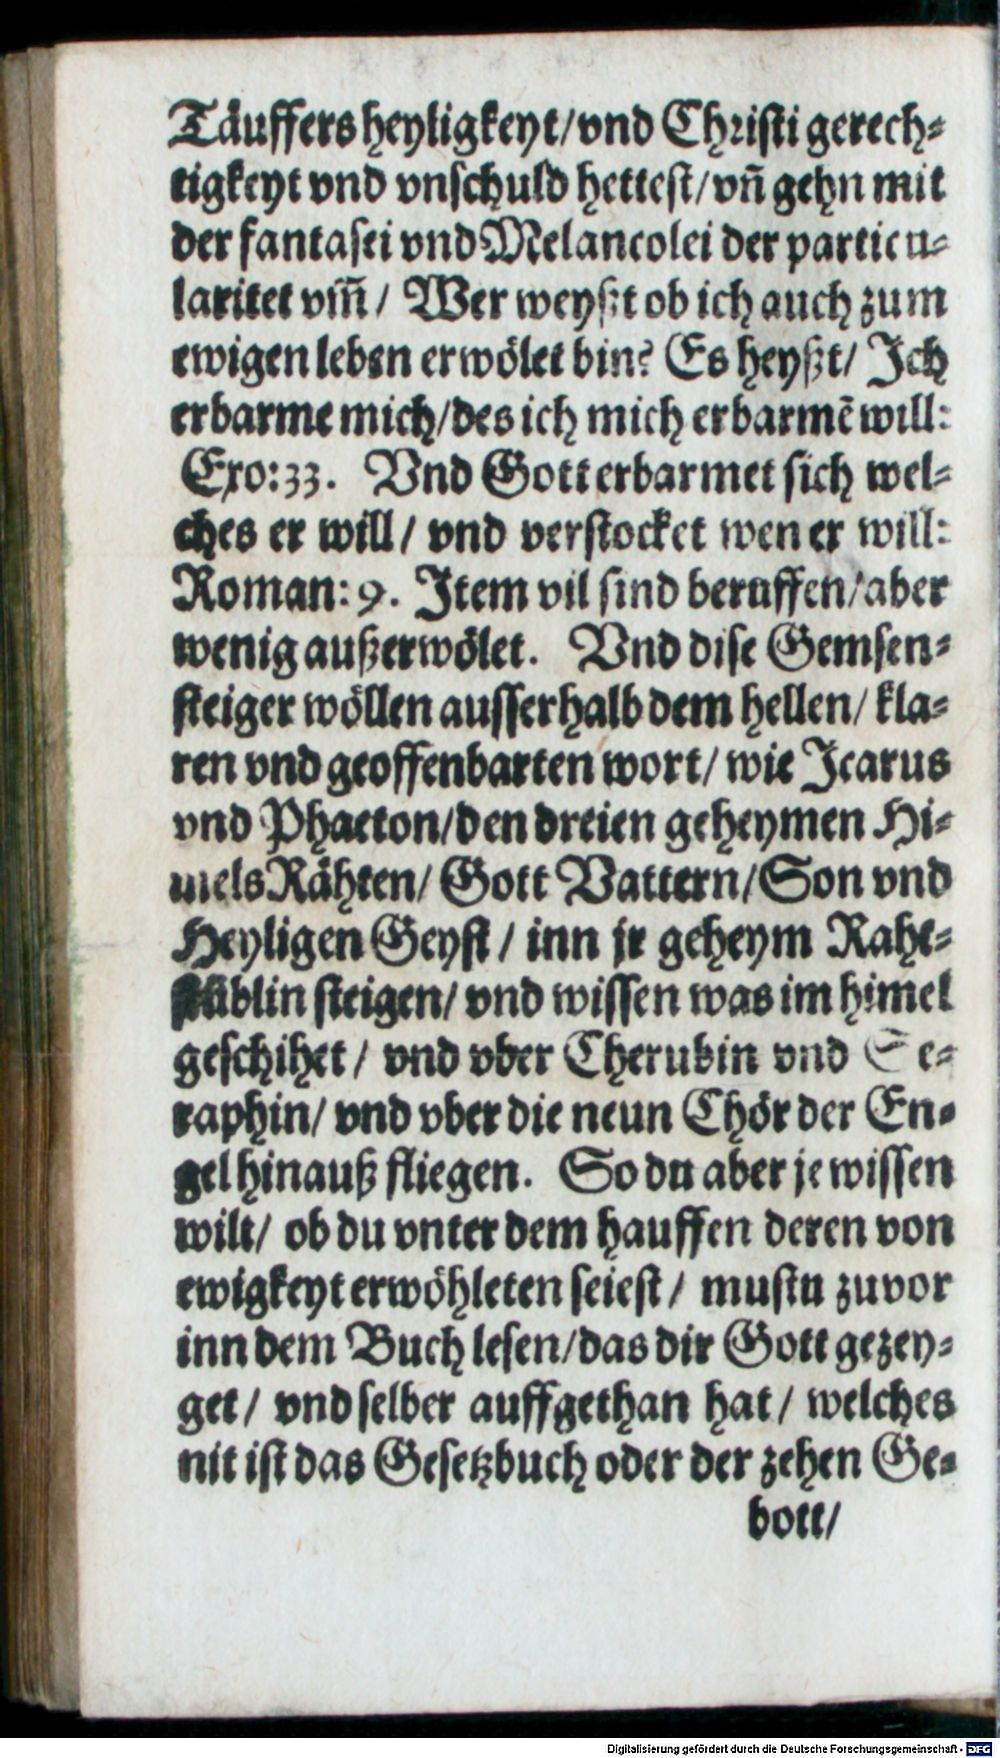 Täuffers heyligkeyt/vnd Christi gerech-
tigkeyt vnd vnschuld hettest/vñ gehn mit
der fantasei vnd Melancolei der particu-
laritet vm̃/ Wer weyßt ob ich auch zum
ewigen leben erwölet bin? Es heyßt/ Ich
erbarme mich/des ich mich erbarmē will:
Exo:33. Vnd Gott erbarmet sich wel-
ches er will/ vnd verstocket wen er will:
Roman: 9. Item vil sind beruffen/aber
wenig außerwölet. Vnd dise Gemsen-
steiger wöllen ausserhalb dem hellen/ kla-
ren vnd geoffenbarten wort/ wie Icarus
vnd Phaeton/den dreien geheymen Hi-
mels Rähten/ Gott Vattern/Son vnd
Heyligen Geyst/ inn jr geheym Raht-
stüblin steigen/ vnd wissen was im himel
geschihet/ vnd vber Cherubin vnd Se-
raphin/ vnd vber die neun Chör der En-
gel hinauß fliegen. So du aber je wissen
wilt/ ob du vnter dem hauffen deren von
ewigkeyt erwöhleten seiest/ mustu zuvor
inn dem Buch lesen/das dir Gott gezey-
get/ vnd selber auffgethan hat/ welches
nit ist das Gesetzbuch oder der zehen Ge-
bott/
Digitalisierung gefördert durch die Deutsche Forschungsgemeinschaft - DFG